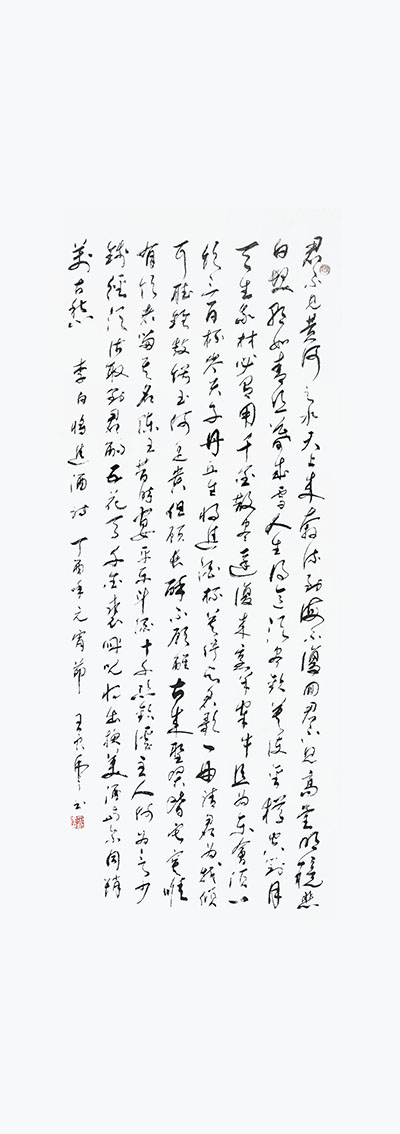 君不见黄河之水天上来奔流到海不复回君不见高堂明镜悲
白发朝如青丝暮成雪人生得意须尽欢莫使金樽空对月
天生我材必有用千金散尽还复来烹羊宰牛且为乐会须一
饮三百杯岑夫子丹丘生将进酒杯莫停与君歌一曲请君为我倾
耳听钟鼓馔玉何足贵但愿长醉不愿醒古来圣贤皆寂寞惟
有饮者留其名陈王昔时宴平乐斗酒十千恣欢谑主人何为言少
钱径须沽取对君酌五花马千金裘呼儿将出换美酒与尔同销
万古愁 李白将进酒诗 丁酉年元宵节 王 虎书